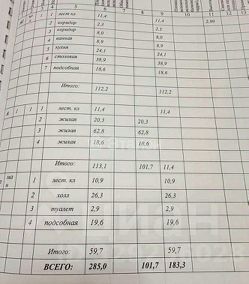 1 лест.кл 11,4 11,4 2.80
2 коридор 2,3 2,3
3 коридор 8,0 8,0
4 ванная 8,9 8,9
5 кухня 24,1 24,1
6 столовая 38,9 38,9
7 подсобная 18,6 18,6
Итого: 112,2 112,2
1 1 лест. кл 11,4 11,4
2 жилая 20,3 20,3
3 жилая 62,8 62,8
4 жилая 18,6 18,6
Итого: 113,1 101,7 11,4
1 лест. кл 10,9 10,9
2 холл 26,3 26,3
3 туалет 2,9 2,9
4 подсобная 19,6 19,6
Итого: 59,7 59,7
ВСЕГО: 285,0 101,7 183,3